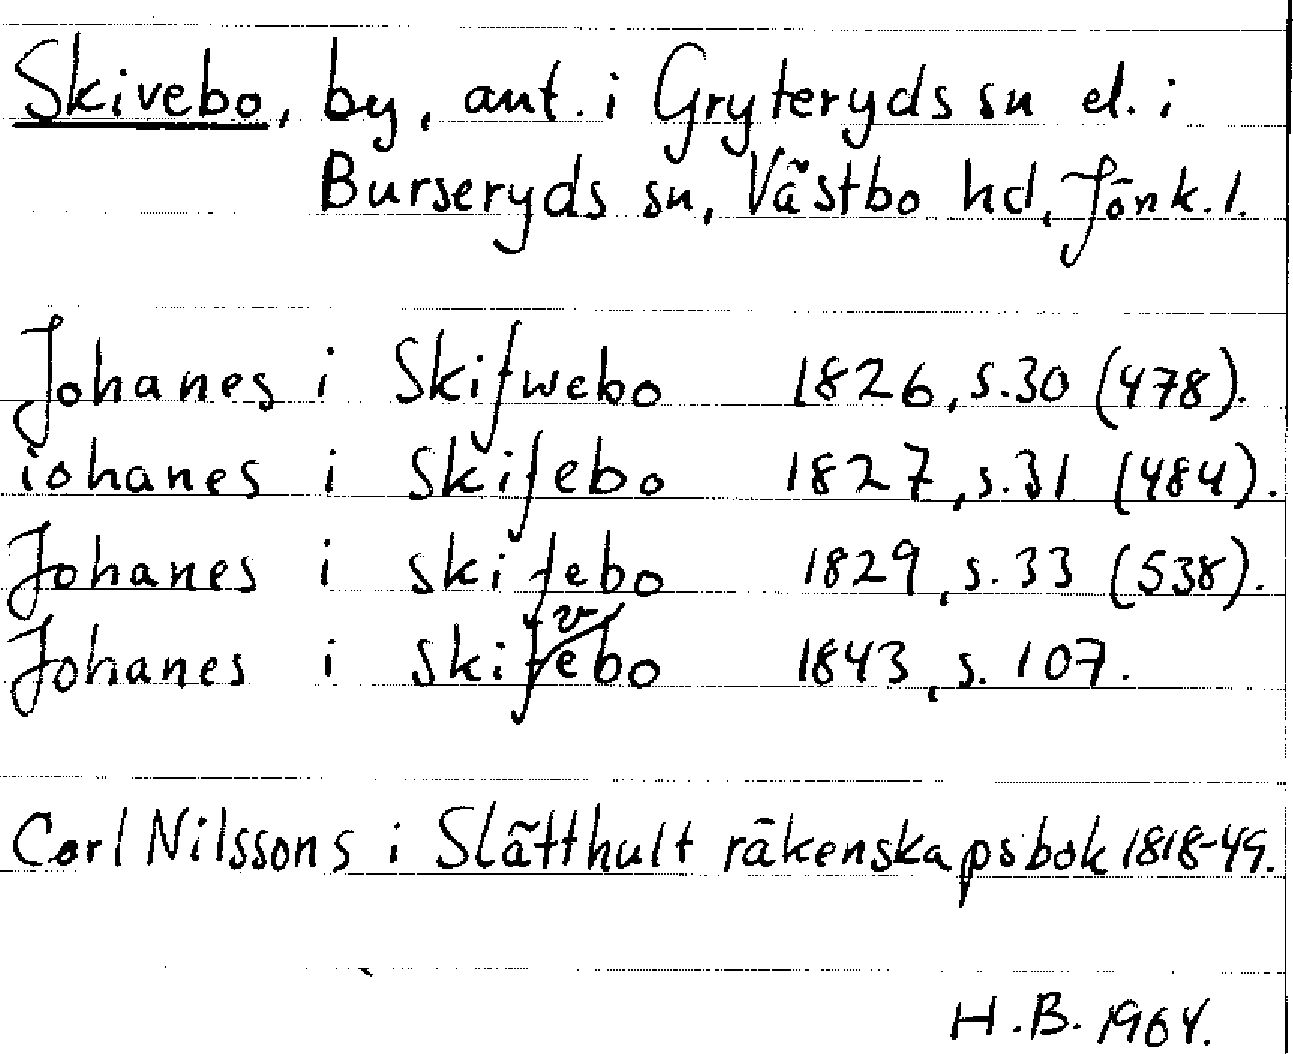 Skivebo, by, ant. i Gryteryds sn el. i
Burseryds sn, Västbo hd, Jönk. l.
Johanes i Skifwebo 1826, s. 30 (478).
iohanes i skifebo 1827, s. 31 (484).
Johanes i skifebo 1829, s. 33 (538).
Johanes i skifvebo 1843, s. 107.
Carl Nilssons i Slätthult räkenskapsbok 1818-49.
H.B. 1964.